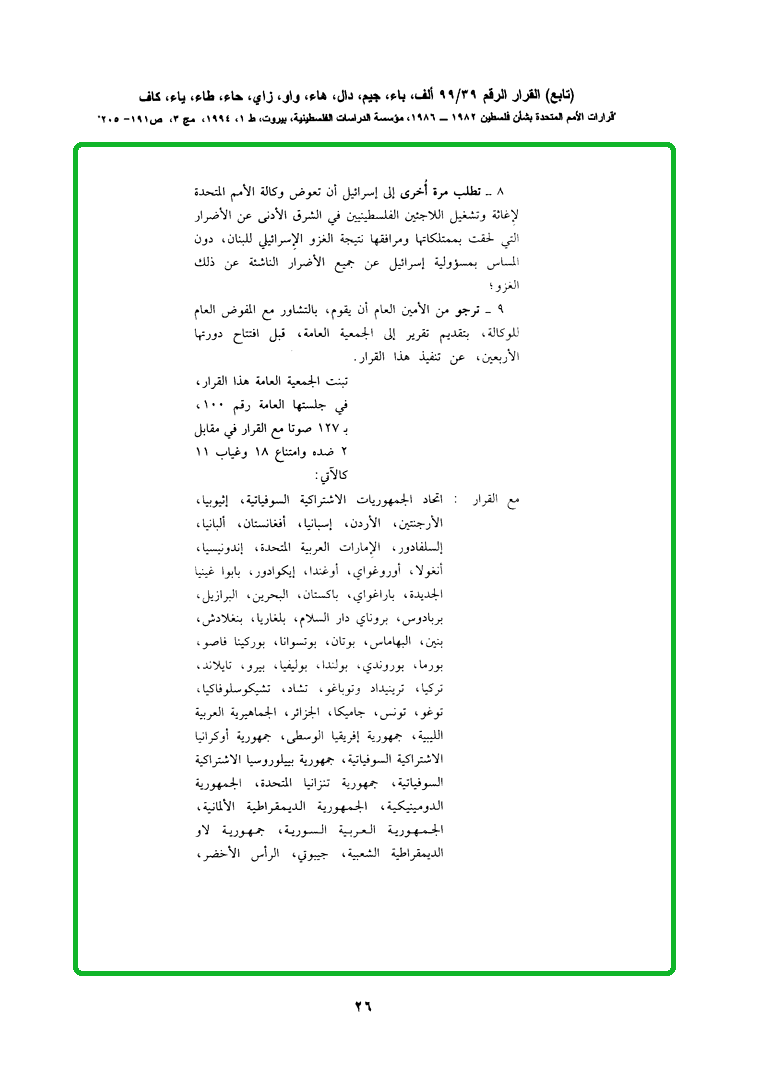 (تابع) القرار الرقم ٩٩/٣٩ ألف، باء، جيم، دال، هاء، واو، زاي، حاء، طاء، ياء، كاف
"قرارات الأمم المتحدة بشأن فلسطين ١٩٨٢ ــ ١٩٨٦، مؤسسة الدراسات الفلسطينية، بيروت، ط ١، ١٩٩٤، مج ٣، ص١٩١- ٢٠٥"
٨ ــ تطلب مرة أُخرى إلى إسرائيل أن تعوض وكالة الأمم المتحدة
لإغاثة وتشغيل اللاجئين الفلسطينيين في الشرق الأدنى عن الأضرار
التي لحقت بممتلكاتها ومرافقها نتيجة الغزو الإسرائيلي للبنان، دون
المساس بمسؤولية إسرائيل عن جميع الأضرار الناشئة عن ذلك
الغزو؛
٩ ــ ترجو من الأمين العام أن يقوم، بالتشاور مع المفوض العام
للوكالة، بتقديم تقرير إلى الجمعية العامة، قبل افتتاح دورتها
الأربعين، عن تنفيذ هذا القرار.
تبنت الجمعية العامة هذا القرار،
في جلستها العامة رقم ١٠٠،
بـ ١٢٧ صوتا مع القرار في مقابل
٢ ضده وامتناع ١٨ وغياب ١١
كالآتي:
مع القرار : اتحاد الجمهوريات الاشتراكية السوفياتية، إثيوبيا،
الأرجنتين، الأردن، إسبانيا، أفغانستان، ألبانيا،
إلسلفادور، الإمارات العربية المتحدة، إندونيسيا،
أنغولا، أوروغواي، أوغندا، إيكوادور، بابوا غينيا
الجديدة، باراغواي، باكستان، البحرين، البرازيل،
بربادوس، بروناي دار السلام، بلغاريا، بنغلادش،
بنين، البهاماس، بوتان، بوتسوانا، بوركينا فاصو،
بورما، بوروندي، بولندا، بوليفيا، بيرو، تايلاند،
تركيا، ترينيداد وتوباغو، تشاد، تشيكوسلوفاكيا،
توغو، تونس، جاميكا، الجزائر، الجماهيرية العربية
الليبية، جمهورية إفريقيا الوسطى، جمهورية أوكرانيا
الاشتراكية السوفياتية، جمهورية بييلوروسيا الاشتراكية
السوفياتية، جمهورية تنزانيا المتحدة، الجمهورية
الدومينيكية، الجمهورية الديمقراطية الألمانية،
الجمهورية العربية السورية، جمهورية لاو
الديمقراطية الشعبية، جيبوتي، الرأس الأخضر،
٢٦